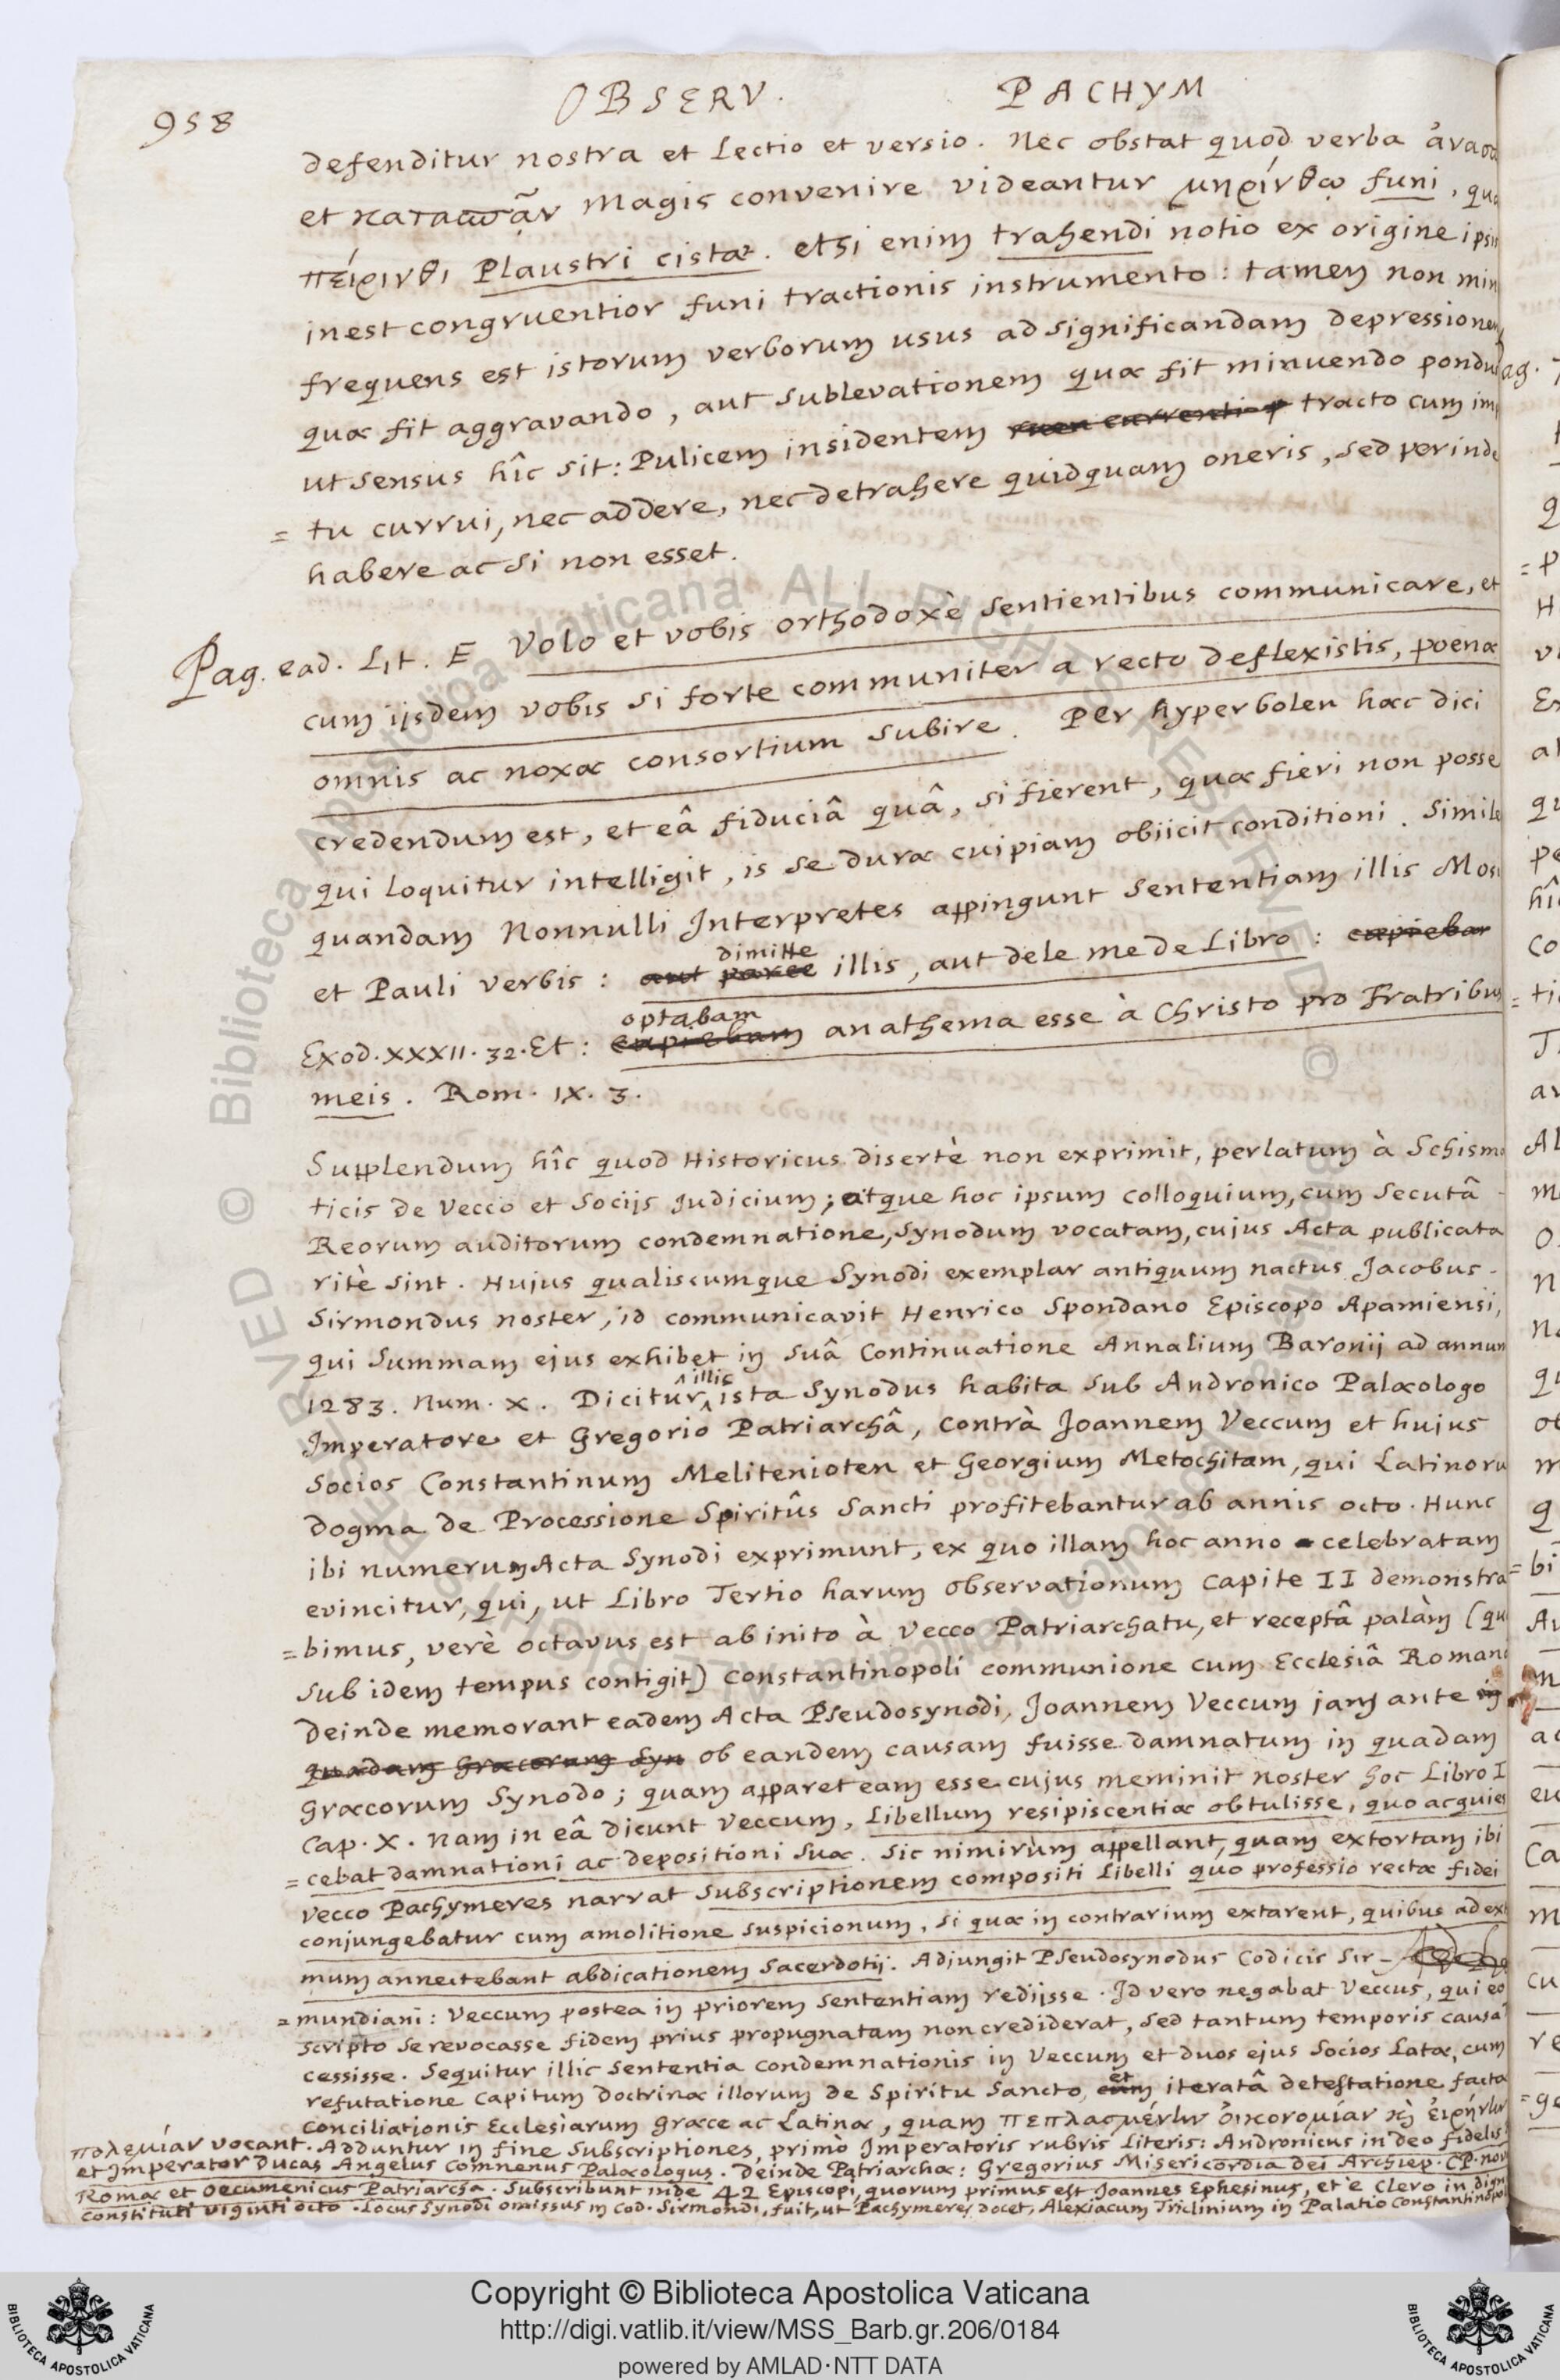 958
OBSERV. PACHYM
defenditur nostra et Lectio et versio. Nec obstat quod verba
et καταϖᾷν magis convenire videantur μηρίνθῳ funi,
πείρινθι Plaustri cistæ. etsi enim trahendi notio ex origine
inest congruentior funi tractionis instrumento: tamen non
frequens est istorum verborum usus ad significandam depressionem
quæ fit aggravando, aut sublevationem quæ fit minuendo
ut sensus hîc sit: Pulicem insidentem tracto cum
= tu currui, nec addere, nec detrahere quidquam oneris, sed perinde
habere ac si non esset.
Pag. ead. Lit. E Volo et vobis orthodoxè sentientibus communicare, et
cum ijsdem vobis si forte communiter a recto deflexistis, poenæ
omnis ac noxæ consortium subire. Per hyperbolen hæc dici
credendum est, et eâ fiduciâ quâ, si fierent, quæ fieri non posse
qui loquitur intelligit, is se duræ cuipiam obiicit conditioni. Simile
quandam Nonnulli Interpretes appingunt sententiam illis
et Pauli verbis: aut parce dimitte illis, aut dele me de Libro: cupiebar
Exod. XXXII. 32. Et: cupiebam optabam anathema esse à Christo pro Fratribus
meis. Rom. IX. 3.
Supplendum hîc quod Historicus disertè non exprimit, perlatum à
ticis de Vecco et Socijs Judicium; atque hoc ipsum colloquium, cum secutâ
Reorum auditorum condemnatione, Synodum vocatam, cujus Acta publicata
ritè sint. Hujus qualiscumque Synodi exemplar antiquum nactus Jacobus
Sirmondus noster, id communicavit Henrico Spondano Episcopo Apamiensi,
qui Summam ejus exhibet in suâ Continuatione Annalium Baronij ad annum
1283. Num. X. Dicitur illic ista Synodus habita sub Andronico Palæologo
Imperatore et Gregorio Patriarchâ, contrà Joannem Veccum et hujus
Socios Constantinum Melitenioten et Georgium Metochitam, qui
dogma de Processione Spiritûs Sancti profitebantur ab annis octo. Hunc
ibi numerum Acta Synodi exprimunt, ex quo illam hoc anno celebratam
evincitur, qui, ut Libro Tertio harum observationum capite II demonstra
= bimus, verè octavus est ab inito à Vecco Patriarchatu, et receptâ palàm (qu
sub idem tempus contigit) Constantinopoli communione cum Ecclesiâ
Deinde memorant eadem Acta Pseudosynodi, Joannem Veccum jam ante in
quadam Græcorum Syn ob eandem causam fuisse damnatum in quadam
Græcorum Synodo; quam apparet eam esse cujus meminit noster hoc Libro I
Cap. X. Nam in eâ dicunt Veccum, Libellum resipiscentiæ obtulisse, quo acquies
= cebat damnationi ac depositioni suæ. Sic nimirùm appellant, quam extortam ibi
Vecco Pachymeres narrat subscriptionem compositi Libelli quo professio rectæ fidei
conjungebatur cum amolitione suspicionum, si quæ in contrarium extarent, quibus ad
mum annectebant abdicationem sacerdotij. Adjungit Pseudosynodus Codicis Sir-
= mundiani: Veccum postea in priorem sententiam redijsse. Id vero negabat Veccus, qui eo
scripto se revocasse fidem prius propugnatam non crediderat, sed tantum temporis causâ
cessisse. Sequitur illic sententia condemnationis in Veccum et duos ejus socios Latæ, cum
refutatione capitum doctrinæ illorum de Spiritu Sancto, cum et iteratâ detestatione factæ
conciliationis Ecclesiarum Græcæ ac Latinæ, quam πεπλασμένην οἰκονομίαν κὶ εἰρήνην
πολεμίαν vocant. Adduntur in fine subscriptiones, primò Imperatoris rubris literis: Andronicus in deo fidelis
et Imperator Ducas Angelus Comnenus Palæologus. Deinde Patriarchæ: Gregorius Misericordia dei Archiep. CP.
Romæ et Oecumenicus Patriarcha. Subscribunt inde 42 Episcopi, quorum primus est Joannes Ephesinus, et è Clero in
constituti viginti octo. Locus Synodi omissus in Cod. Sirmondi, fuit, ut Pachymeres docet, Alexiacum Triclinium in Palatio
© Biblioteca Apostolica Vaticana ALL RIGHTS RESERVED ©
BIBLIOTECA APOSTOLICA VATICANA
Copyright © Biblioteca Apostolica Vaticana
http://digi.vatlib.it/view/MSS_Barb.gr.206/0184
powered by AMLAD·NTT DATA
BIBLIOTECA APOSTOLICA VATICANA